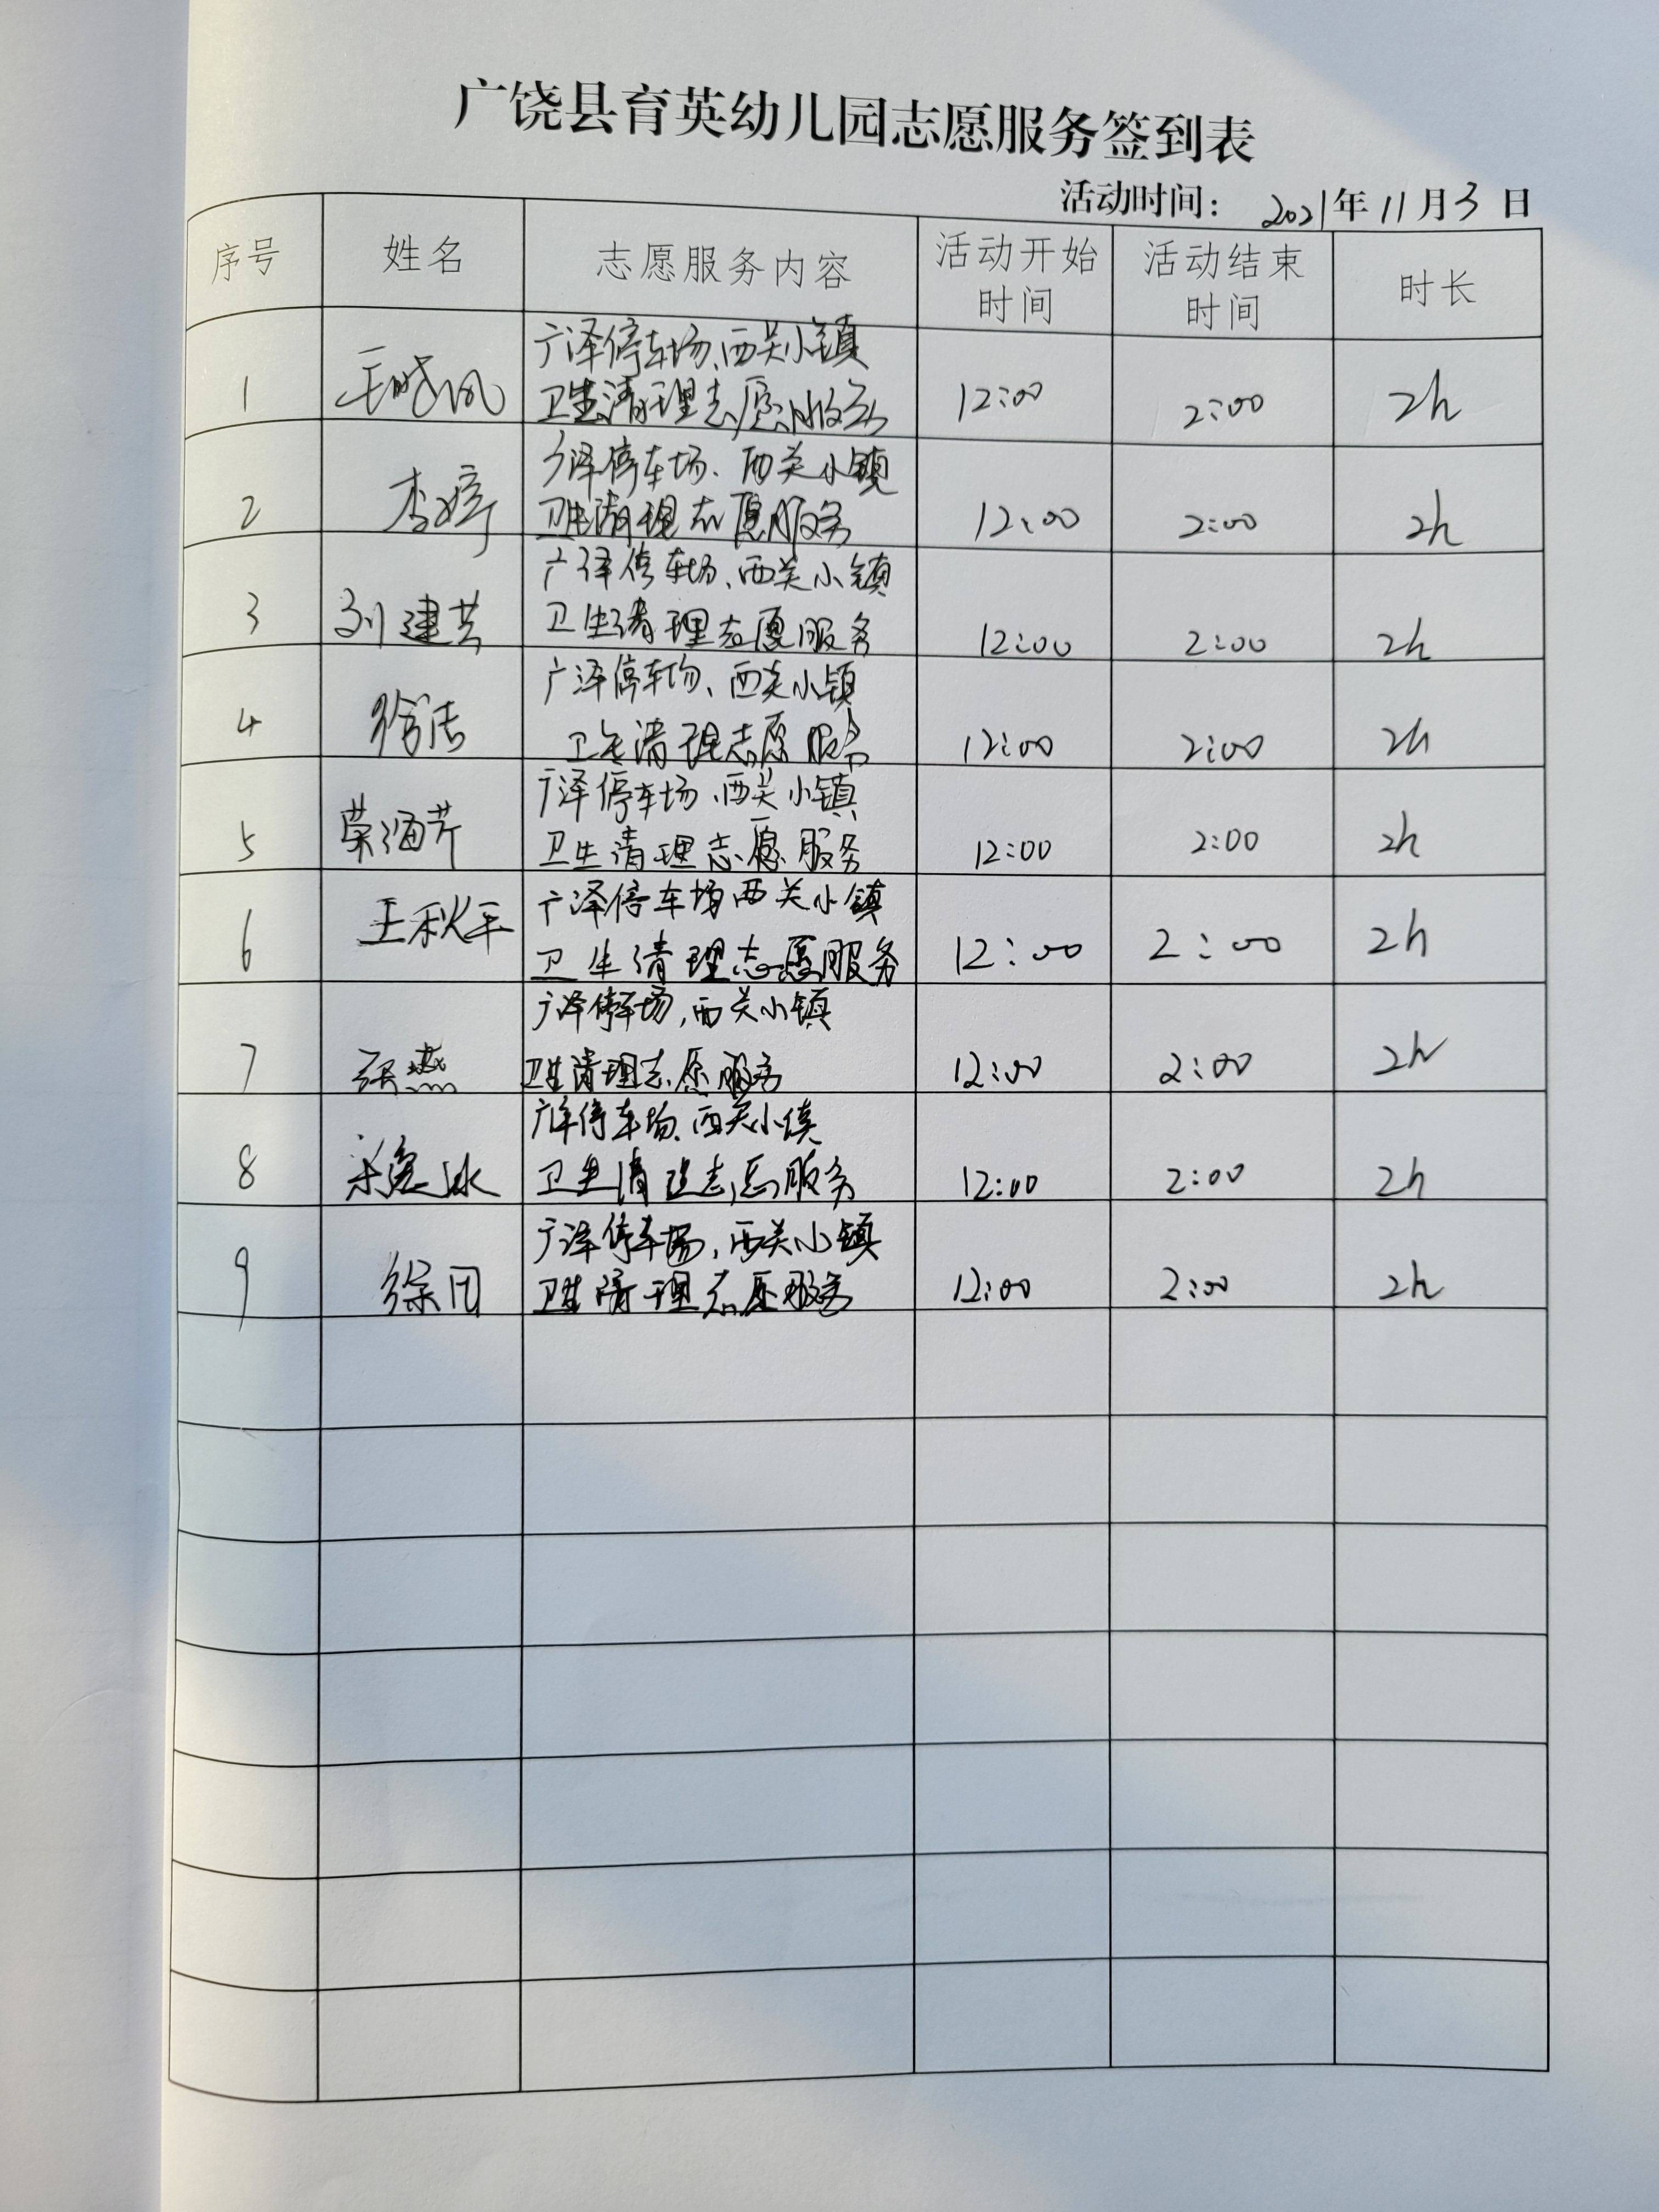 广饶县育英幼儿园志愿服务签到表
活动时间: 2021年11月3日
序号 姓名 志愿服务内容 活动开始时间 活动结束时间 时长
1 王晓风 广泽停车场、西关小镇
卫生清理志愿服务 12:00 2:00 2h
2 李婷 广泽停车场、西关小镇
卫生清理志愿服务 12:00 2:00 2h
3 刘建芸 广泽停车场、西关小镇
卫生清理志愿服务 12:00 2:00 2h
4 徐洁 广泽停车场、西关小镇
卫生清理志愿服务 12:00 2:00 2h
5 荣海芹 广泽停车场、西关小镇
卫生清理志愿服务 12:00 2:00 2h
6 王秋平 广泽停车场西关小镇
卫生清理志愿服务 12:00 2:00 2h
7 张燕 广泽停车场,西关小镇
卫生清理志愿服务 12:00 2:00 2h
8 广泽停车场、西关小镇
卫生清理志愿服务 12:00 2:00 2h
9 广泽停车场,西关小镇
卫生清理志愿服务 12:00 2:00 2h